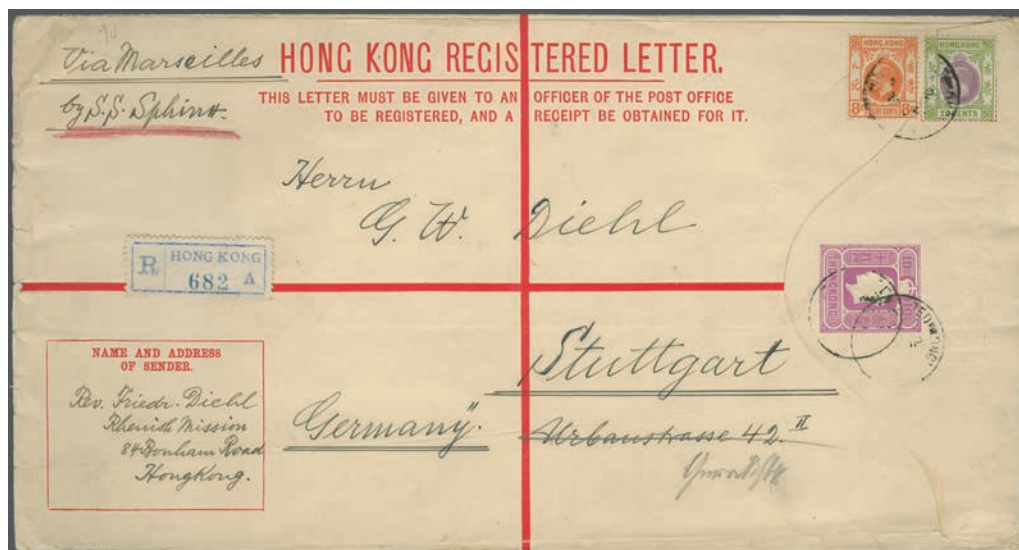 Via Marseilles
by S.S. Sphinx.
HONG KONG REGISTERED LETTER.
THIS LETTER MUST BE GIVEN TO AN OFFICER OF THE POST OFFICE
TO BE REGISTERED, AND A RECEIPT BE OBTAINED FOR IT.
HONG KONG
8
HONG KONG
CENTS
Herrn
G. W. Diehl
R HONG KONG
682 A
HONG KONG
10
Stuttgart
Germany."
Urbanstrasse 42. II
NAME AND ADDRESS
OF SENDER.
Rev. Friedr. Diehl
Rhenish Mission
84 Bonham Road
HongKong.